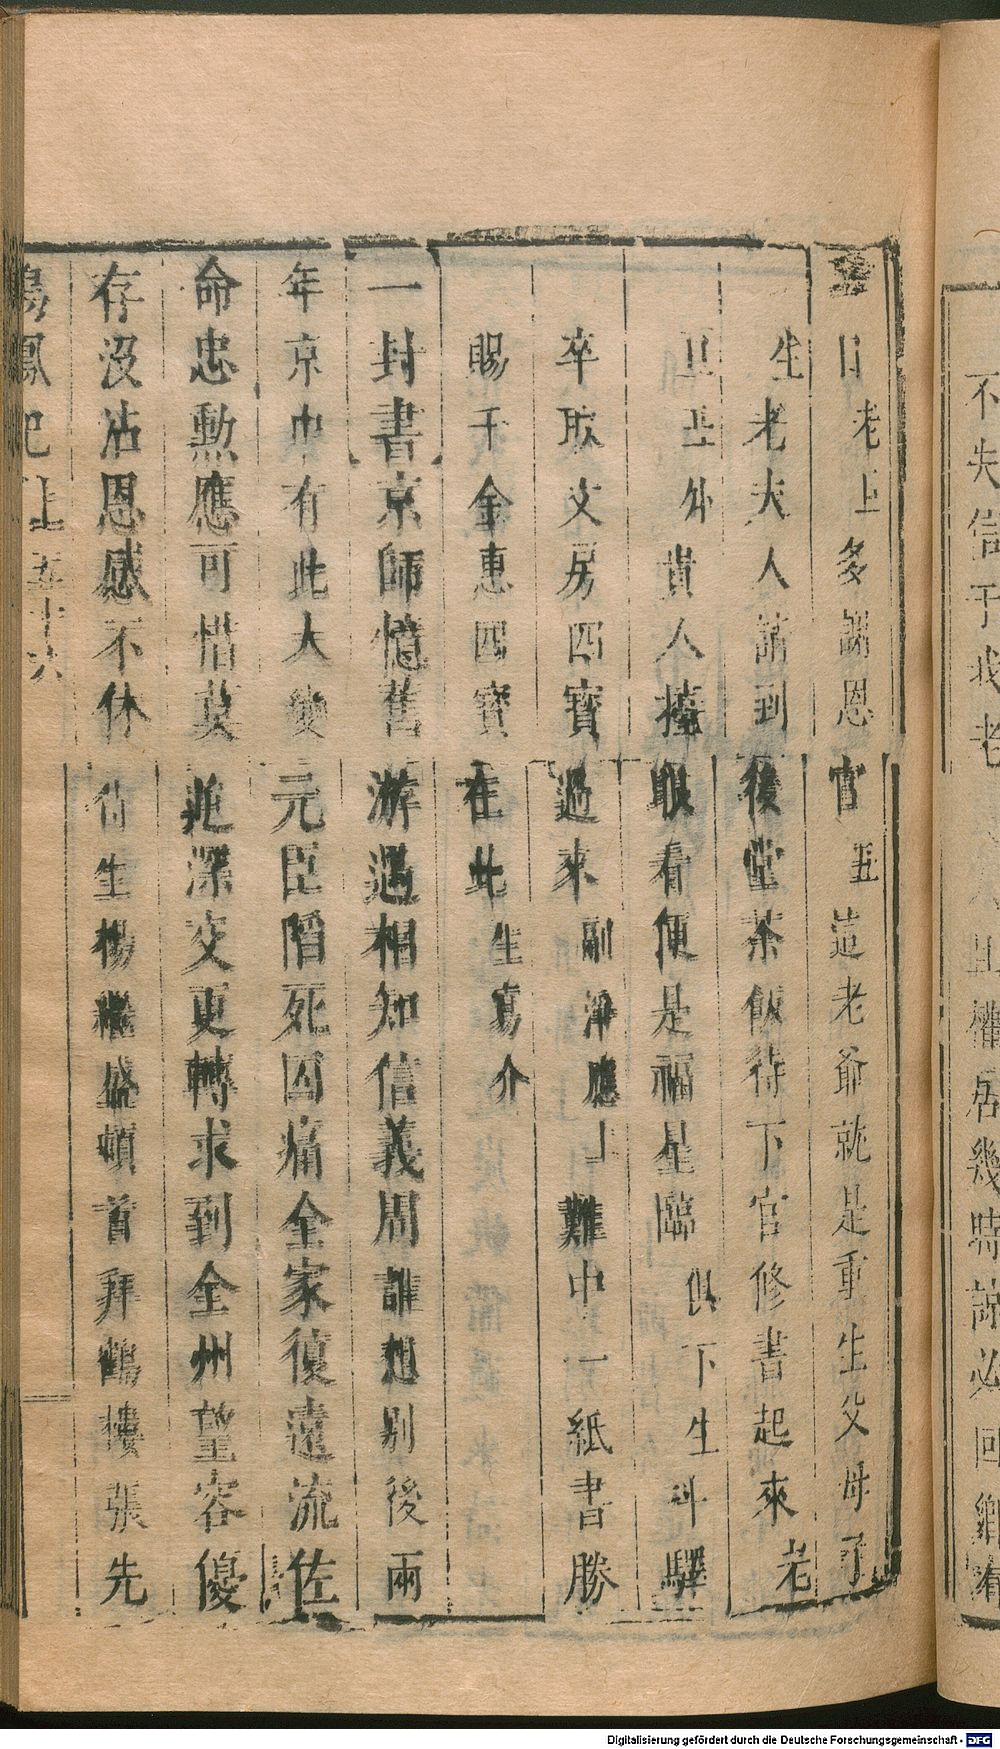 不失信于我老且權居幾時諒必回鄉有
日老旦多謝恩官丑這老爺就是重生父母了
生老夫人請到後堂茶飯待下官修書起來老
旦丑外貴人擡眼看便是福星臨俱下生叫驛
卒取文房四寶過來副淨應上難中一紙書勝
賜千金惠四寶在此生寫介
一封書京師憶舊游遇相知信義周誰想別後兩
年京中有此大變元臣陷死囚痛全家復遠流佐
命忠勳應可惜莫深交更轉求到全州望容優
存沒沾恩感不休侍生楊繼盛頓首拜鶴樓張先
鳴鳳記上五十六
Digitalisierung gefördert durch die Deutsche Forschungsgemeinschaft - DFG